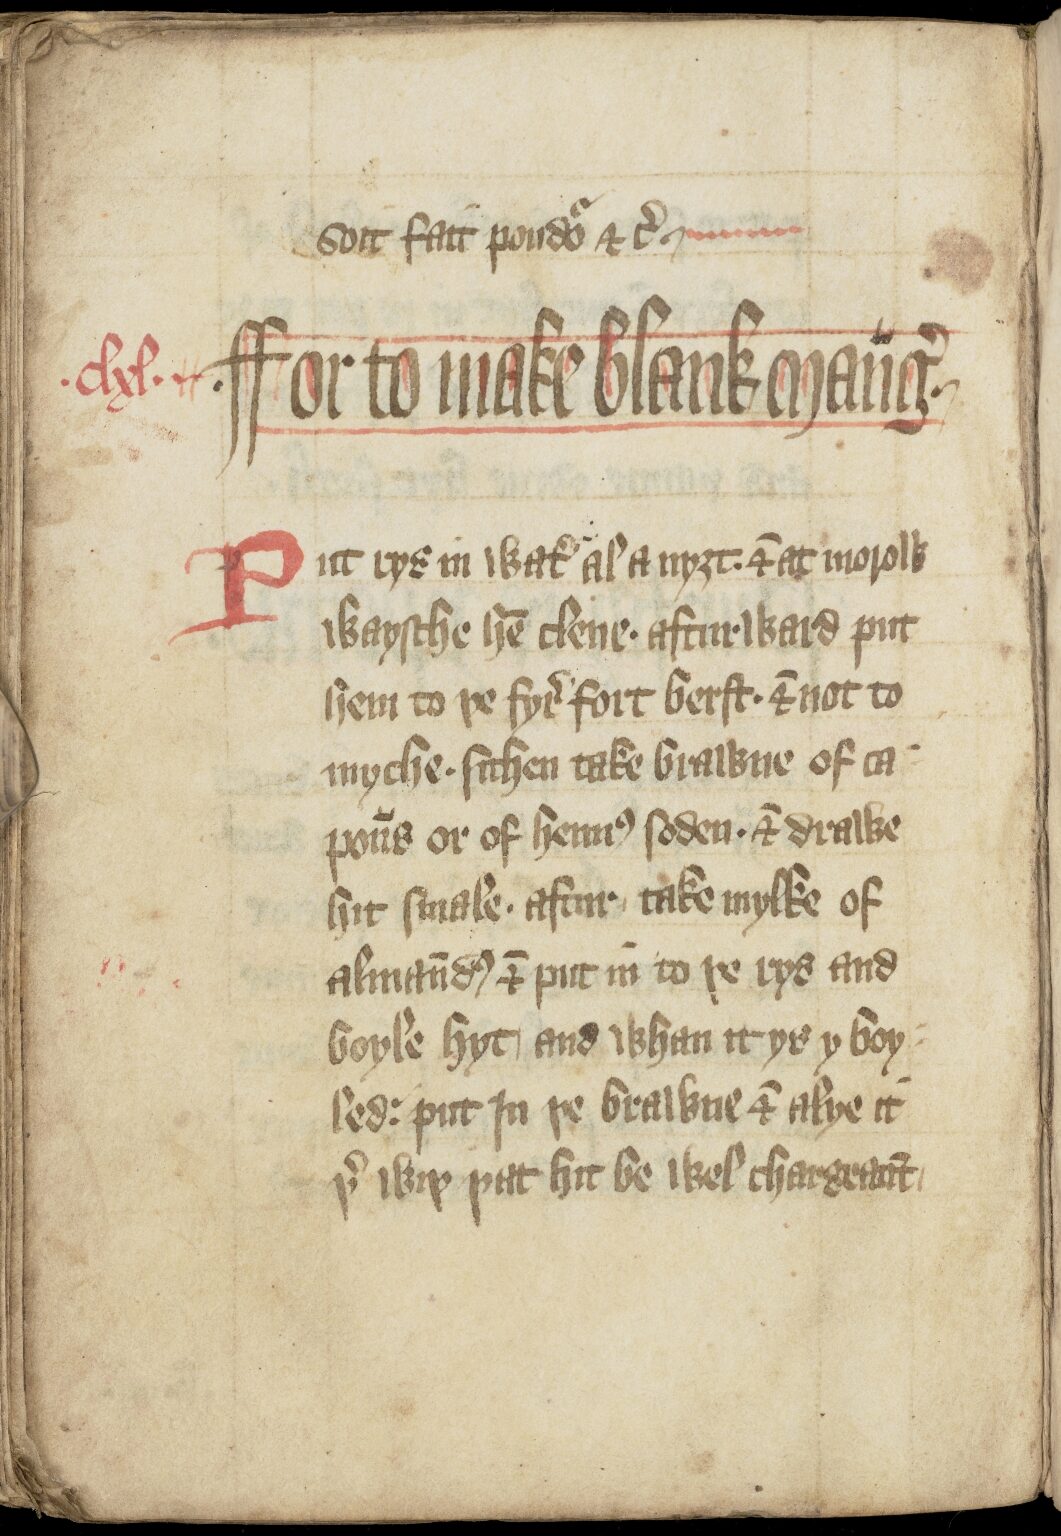 soit fait poudᵃ & cͬ
.clxl. ffor to make blank maūgͬ.
Put rys in watͬ al a nyȝt. & at morow
waysche hē clene. aftur ward put
hem to þe fyrͬ fort berst. & not to
myche. sithen take brawne of ca
poūs or of hennꝰ soden. & drawe
hit smale. aftur take mylke of
almaūdꝰ & put in to þe rys and
boyle hyt and whan it ys y boy
led: put In þe brawne & alye it
þͬ wiþ þat hit be wel chargeaūt